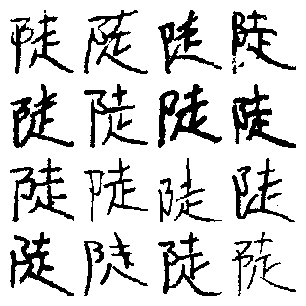 陡陡陡陡
陡陡陡陡
陡陡陡陡
陡陡陡陡